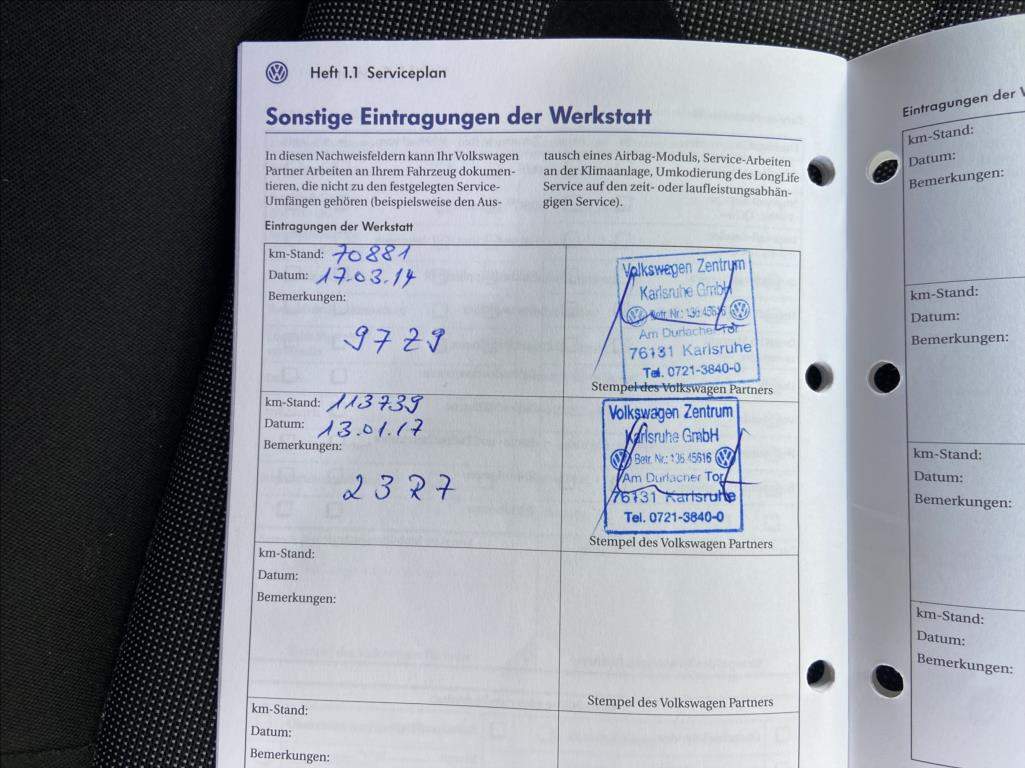 Heft 1.1 Serviceplan
Sonstige Eintragungen der Werkstatt
In diesen Nachweisfeldern kann Ihr Volkswagen
Partner Arbeiten an Ihrem Fahrzeug dokumen-
tieren, die nicht zu den festgelegten Service-
Umfängen gehören (beispielsweise den Aus-
tausch eines Airbag-Moduls, Service-Arbeiten
an der Klimaanlage, Umkodierung des LongLife
Service auf den zeit- oder laufleistungsabhän-
gigen Service).
Eintragungen der Werkstatt
km-Stand: 70881
Datum: 17.03.14
Bemerkungen:
97Z9
Volkswagen Zentrum
Karlsruhe GmbH
Betr. Nr.: 136 45616
Am Durlacher Tor
76131 Karlsruhe
Tel. 0721-3840-0
Stempel des Volkswagen Partners
km-Stand: 113739
Datum: 13.01.17
Bemerkungen:
23R7
Volkswagen Zentrum
Karlsruhe GmbH
Betr. Nr.: 136 45616
Am Durlacher Tor
76131 Karlsruhe
Tel. 0721-3840-0
Stempel des Volkswagen Partners
km-Stand:
Datum:
Bemerkungen:
Stempel des Volkswagen Partners
km-Stand:
Datum:
Bemerkungen:
Eintragungen der
km-Stand:
Datum:
Bemerkungen:
km-Stand:
Datum:
Bemerkungen:
km-Stand:
Datum:
Bemerkungen:
km-Stand:
Datum:
Bemerkungen: